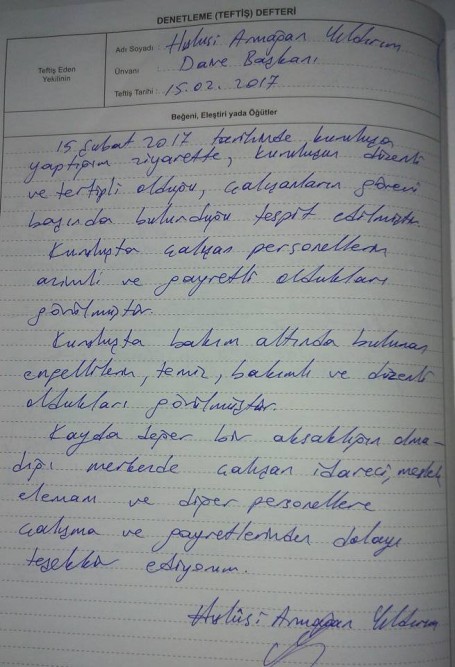 DENETLEME (TEFTİŞ) DEFTERİ
Teftiş Eden
Yetkilinin
Adı Soyadı : Hulusi Armağan Yıldırım
Ünvanı : Daire Başkanı
Teftiş Tarihi : 15.02.2017
Beğeni, Eleştiri yada Öğütler
15 Şubat 2017 tarihinde kuruluşa
yaptığım ziyarette, kuruluşun düzenli
ve tertipli olduğu, çalışanların görevi
başında bulunduğu tespit edilmiştir
Kuruluşta çalışan personellerin
azimli ve gayretli oldukları
görülmüştür.
Kuruluşta bakım altında bulunan
engellilerin, temiz, bakımlı ve düzenli
oldukları görülmüştür.
Kayda değer bir aksaklığın olma-
dığı merkezde çalışan idareci, meslek
elemanı ve diğer personellere
çalışma ve gayretlerinden dolayı
teşekkür ediyorum.
Hulûsi Armağan Yıldırım